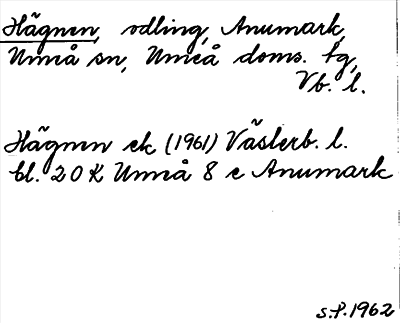 Hägnen, odling, Anumark,
Umeå sn, Umeå doms. tg,
Vb. l.
Hägnen ek (1961) Västerb. l.
bl. 20 K Umeå 8 e Anumark
S.P. 1962